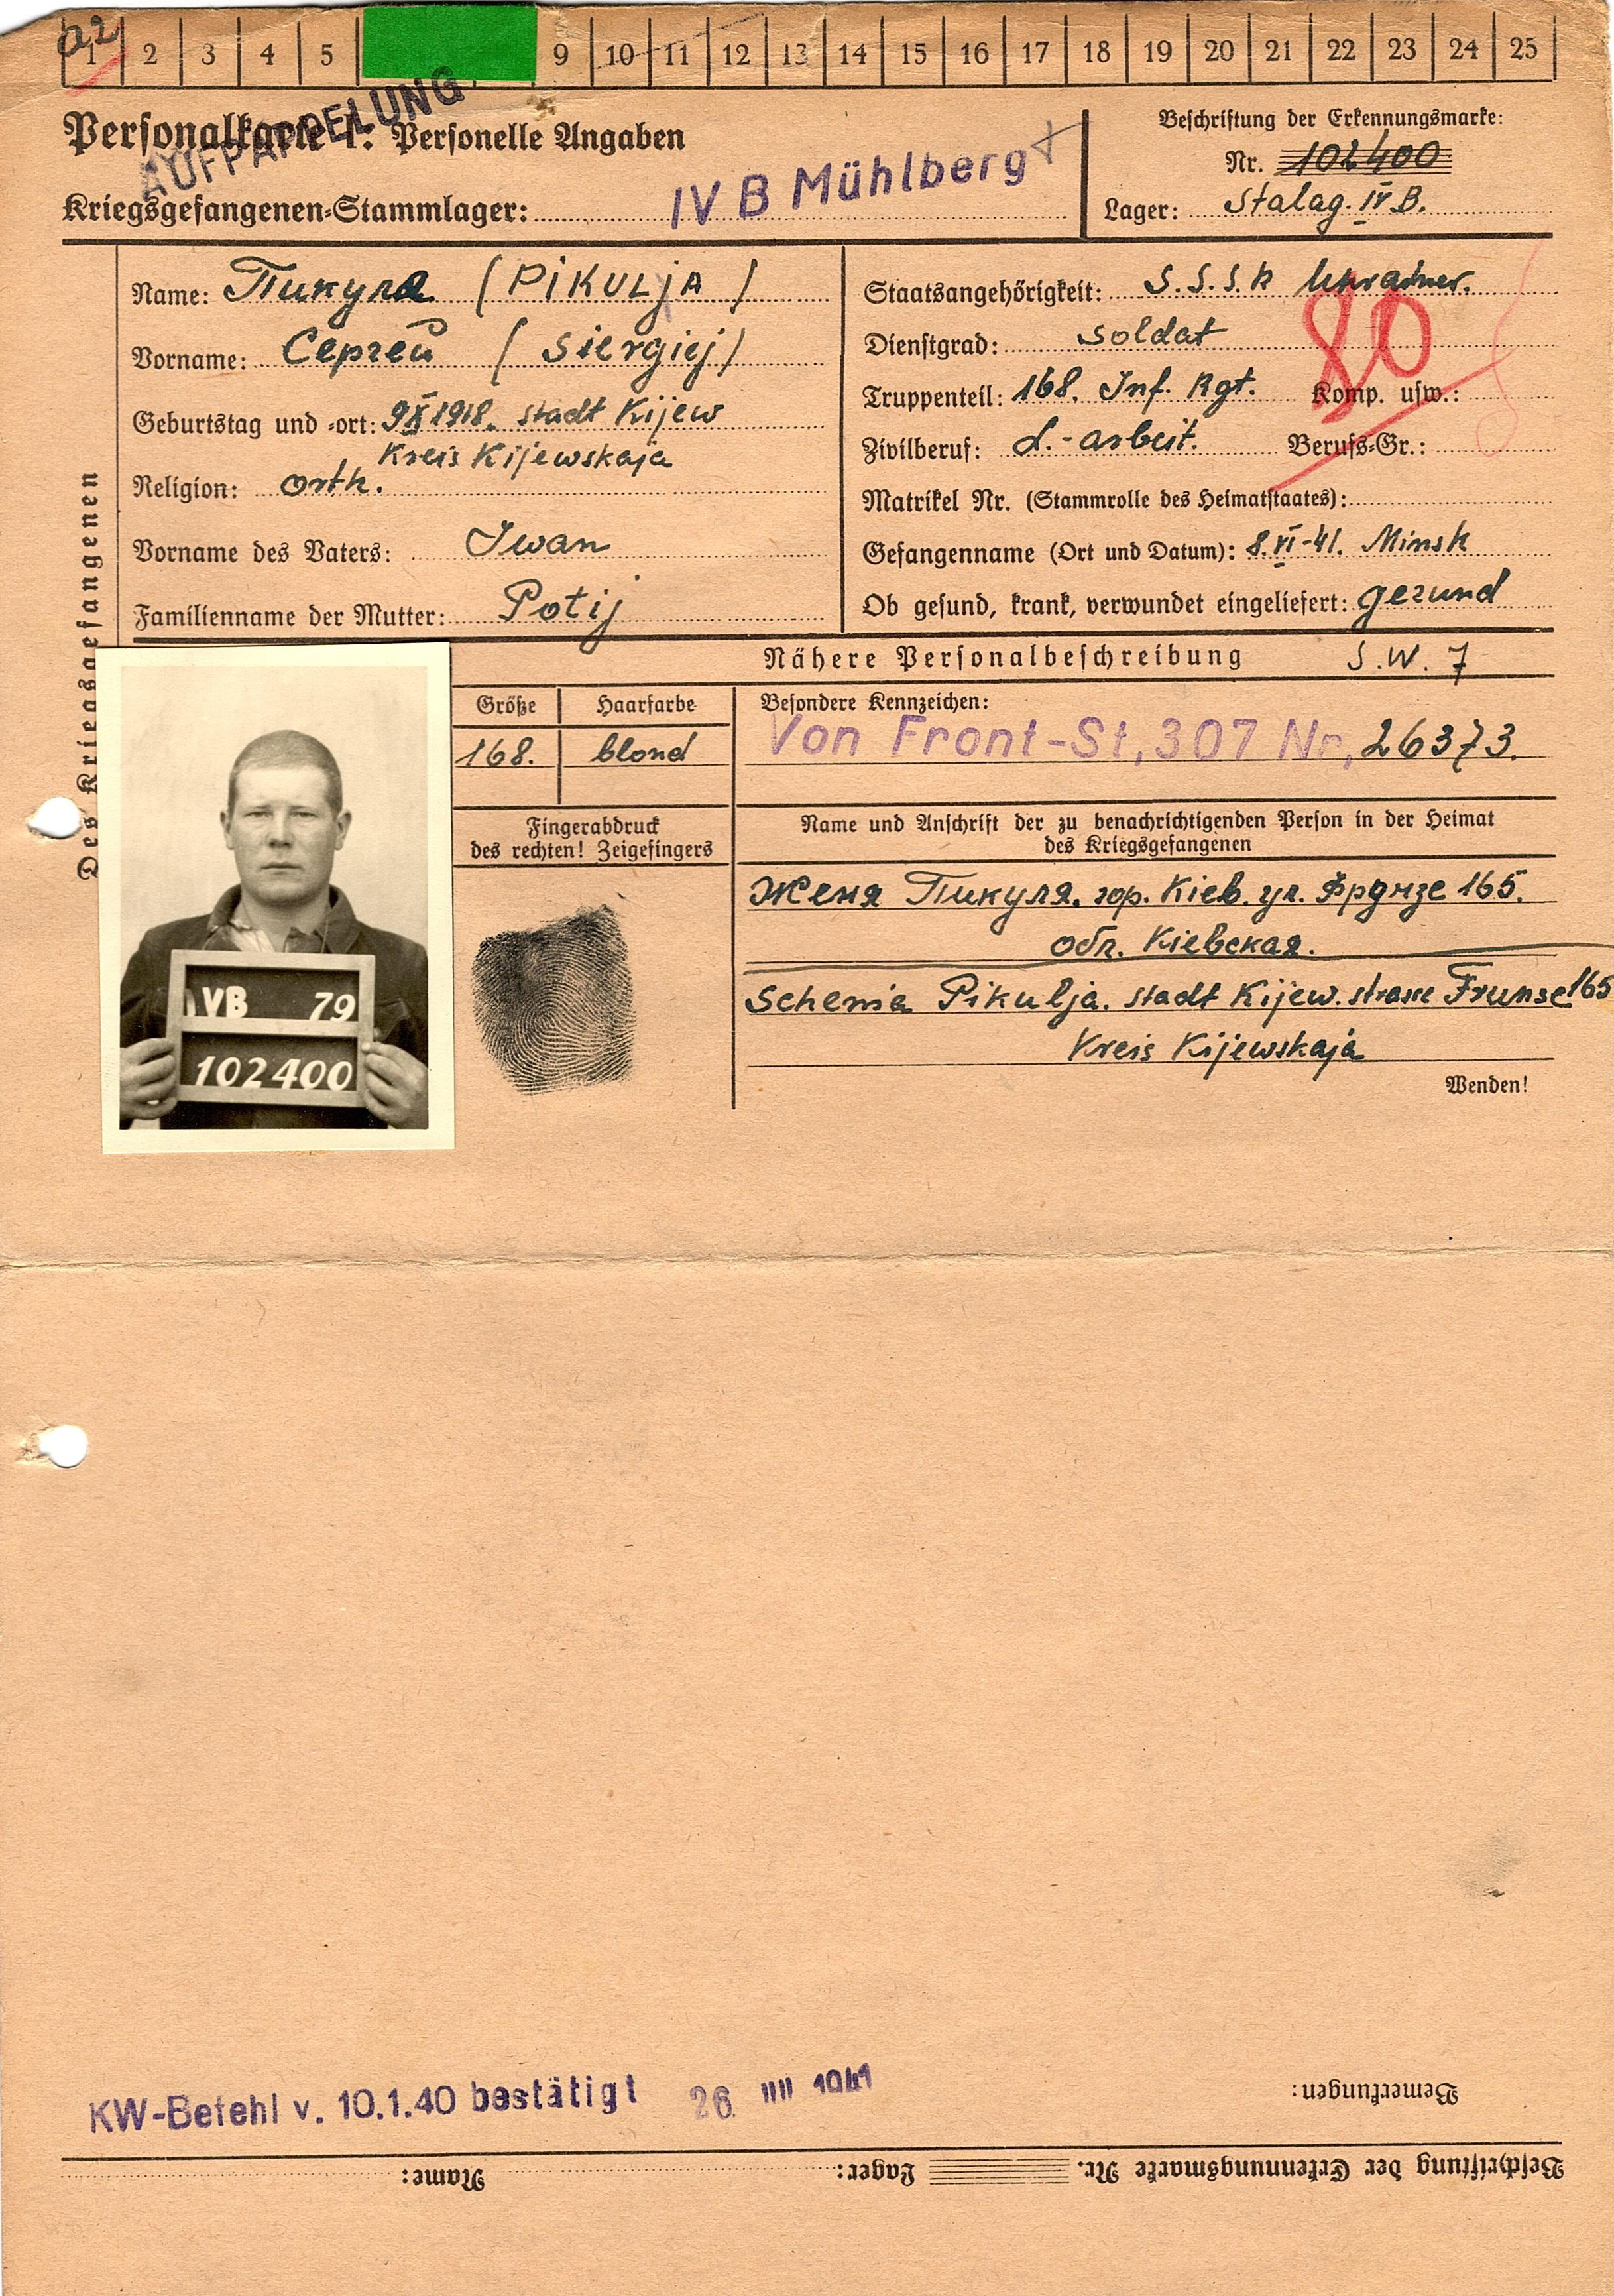 a2
1 2 3 4 5 9 10 11 12 13 14 15 16 17 18 19 20 21 22 23 24 25
AUFPÄPPELUNG
Personalkarte I: Personelle Angaben
Kriegsgefangenen-Stammlager: IV B Mühlberg
Beschriftung der Erkennungsmarke:
Nr. 102400
Lager: Stalag. IV B.
Des Kriegsgefangenen
Name: Пикуля (PiKULjA)
Vorname: Сергей (Siergiej)
Geburtstag und -ort: 9 X 1918. stadt Kijew
Kreis Kijewskaja
Religion: orth.
Vorname des Vaters: Iwan
Familienname der Mutter: Potij
Staatsangehörigkeit: S.S.S.R Ukrainer.
Dienstgrad: soldat
80
Truppenteil: 168. Inf. Rgt. Komp. usw.:
Zivilberuf: L.-arbeit. Berufs-Gr.:
Matrikel Nr. (Stammrolle des Heimatstaates):
Gefangenname (Ort und Datum): 8.VI-41. Minsk
Ob gesund, krank, verwundet eingeliefert: gezund
Nähere Personalbeschreibung S.W. 7
Größe Haarfarbe
168. blond
Besondere Kennzeichen:
Von Front-St, 307 Nr, 26373.
Fingerabdruck
des rechten! Zeigefingers
Name und Anschrift der zu benachrichtigenden Person in der Heimat
des Kriegsgefangenen
Женя Пикуля. гор. Кіев. ул. Фрунзе 165.
обл. Кіевская.
Schenia Pikulja. stadt Kijew. strasse Frunse 165
Kreis Kijewskaja
Wenden!
IVB 79
102400
KW-Befehl v. 10.1.40 bestätigt 26. 1941
Bemerkungen:
Beschriftung der Erkennungsmarke Nr. Lager: Name: